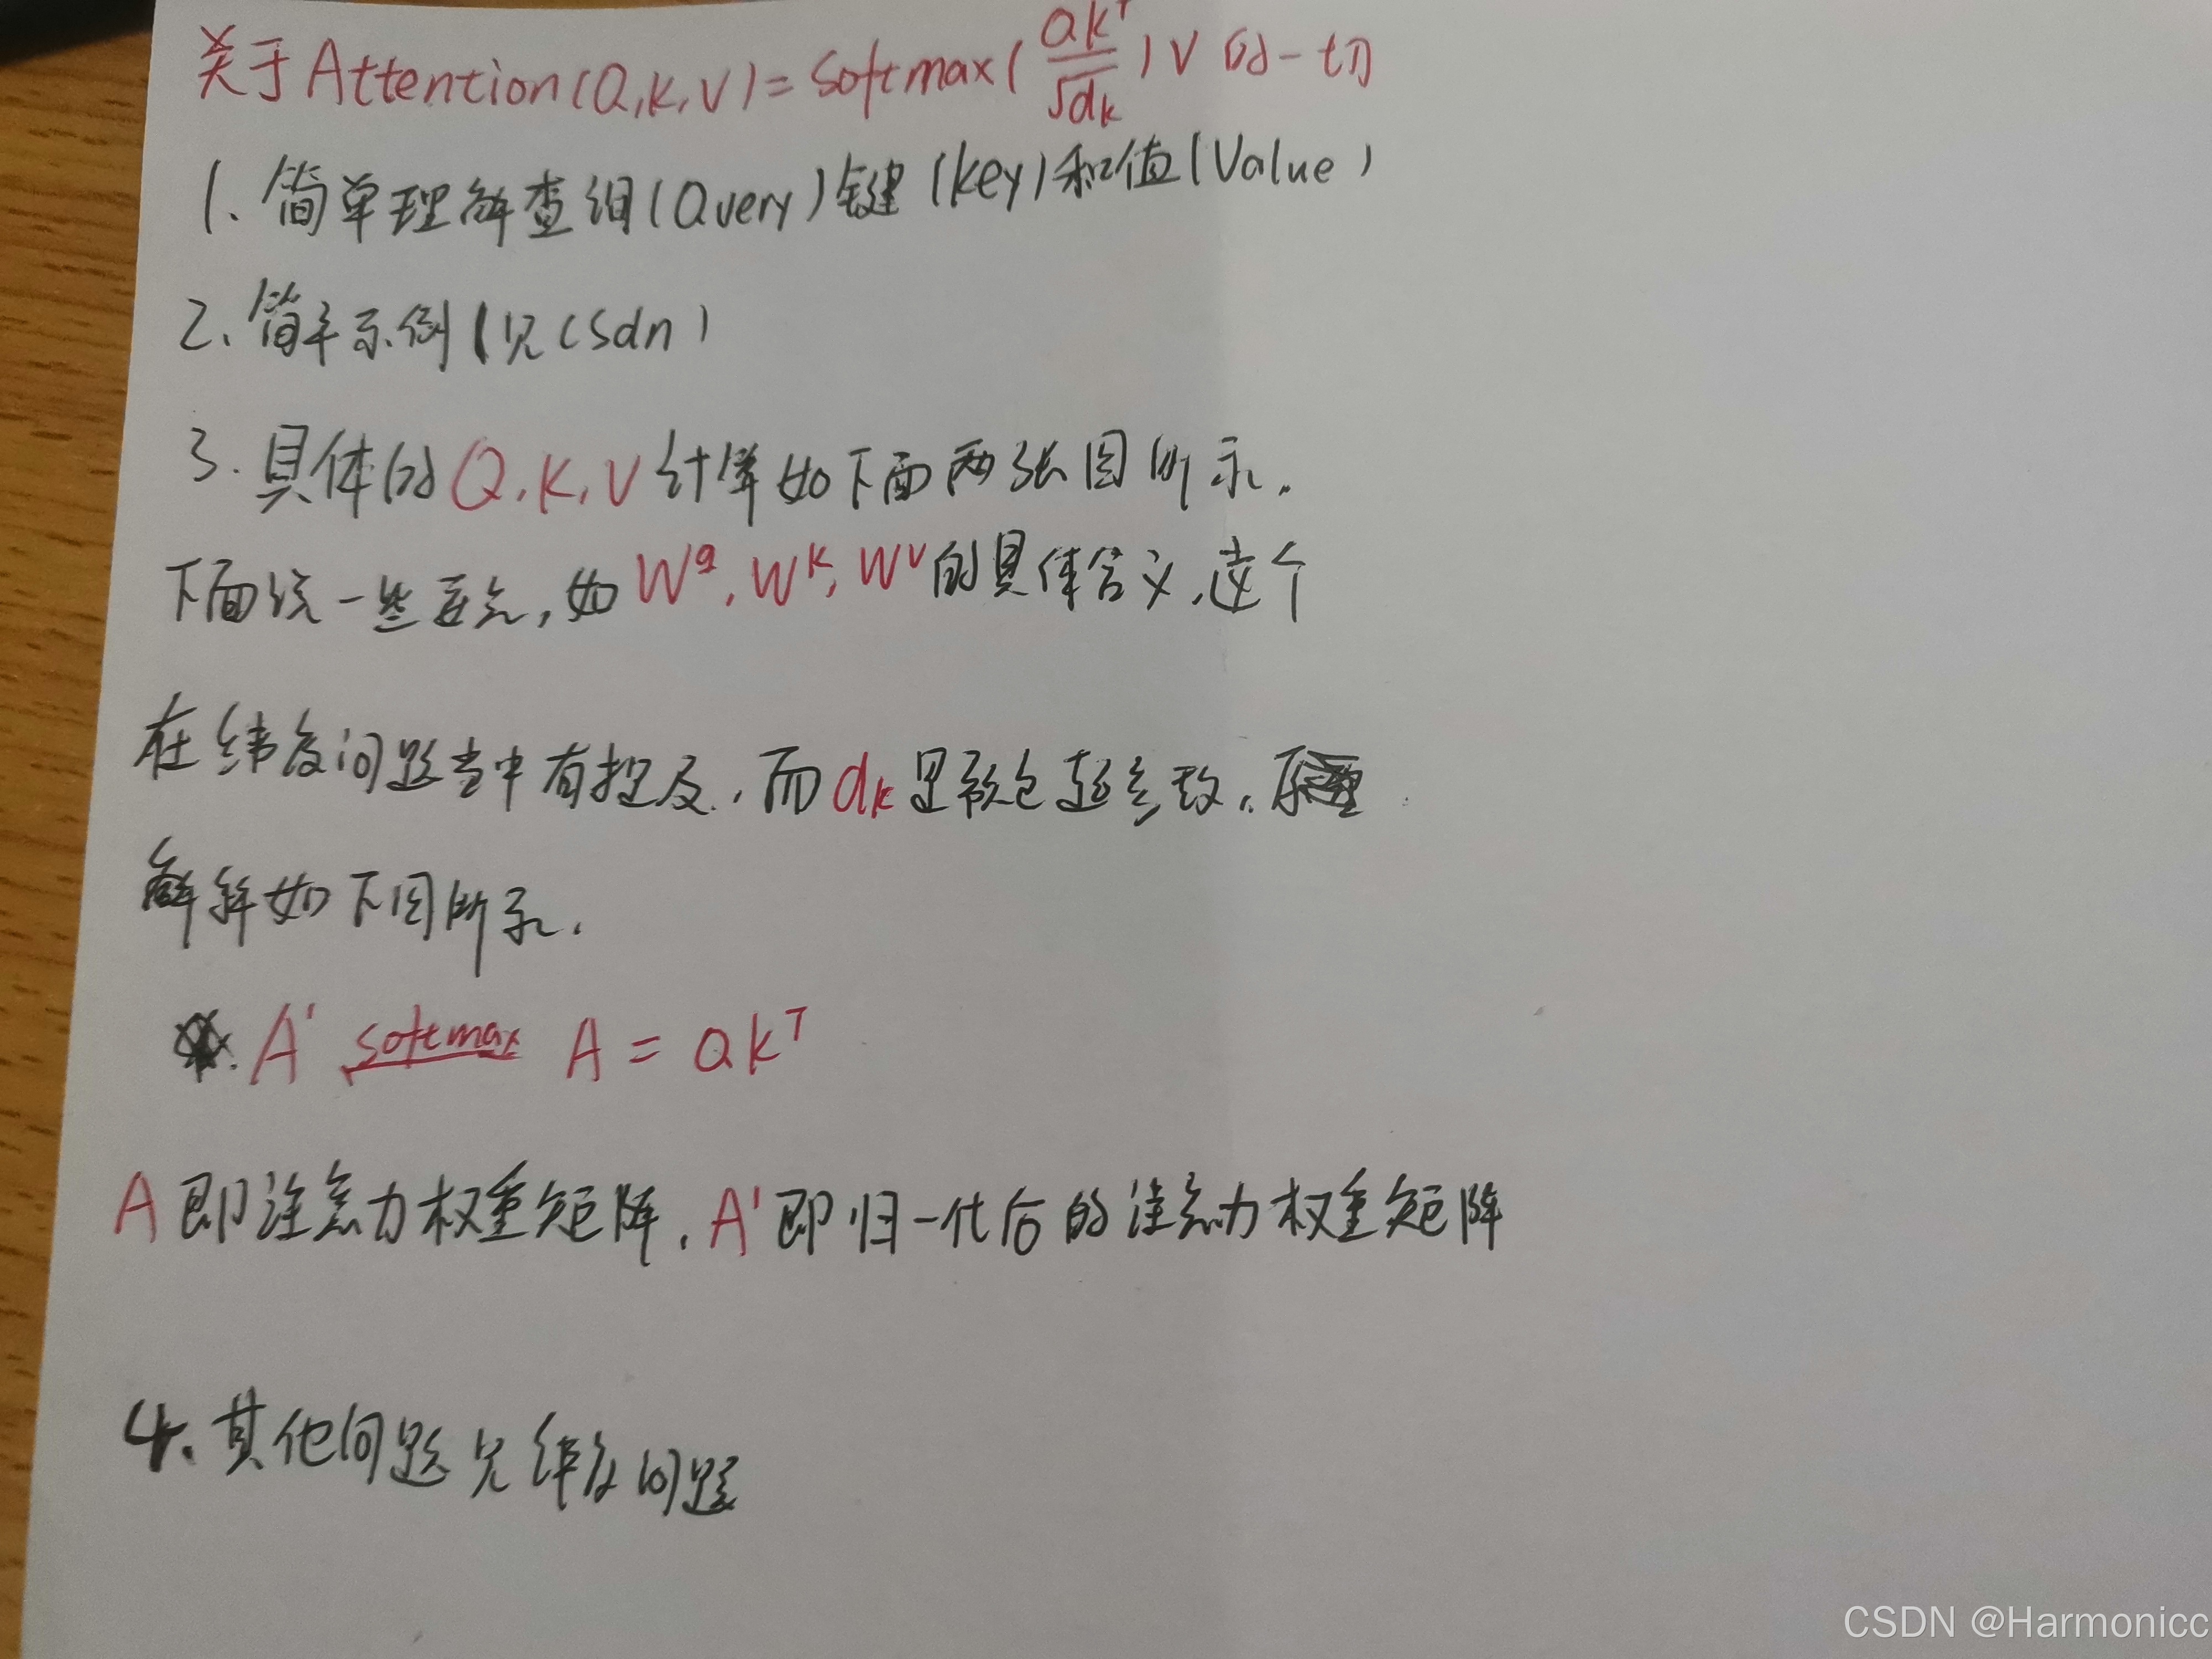 关于Attention(Q,K,V)=Softmax(QK^T/√dk)V的一切
1、简单理解查询(Query)键(key)和值(Value)
2、简单示例(见csdn)
3.具体的Q,K,V计算如下面两张图所示.
下面说一些要点,如W^q,W^k,W^v的具体含义,这个
在纬度问题当中有提及,而dk是缩放超参数.
解释如下图所示.
A' softmax A = QK^T
A即注意力权重矩阵,A'即归一化后的注意力权重矩阵
4、其他问题见纬度问题
CSDN @Harmonicc